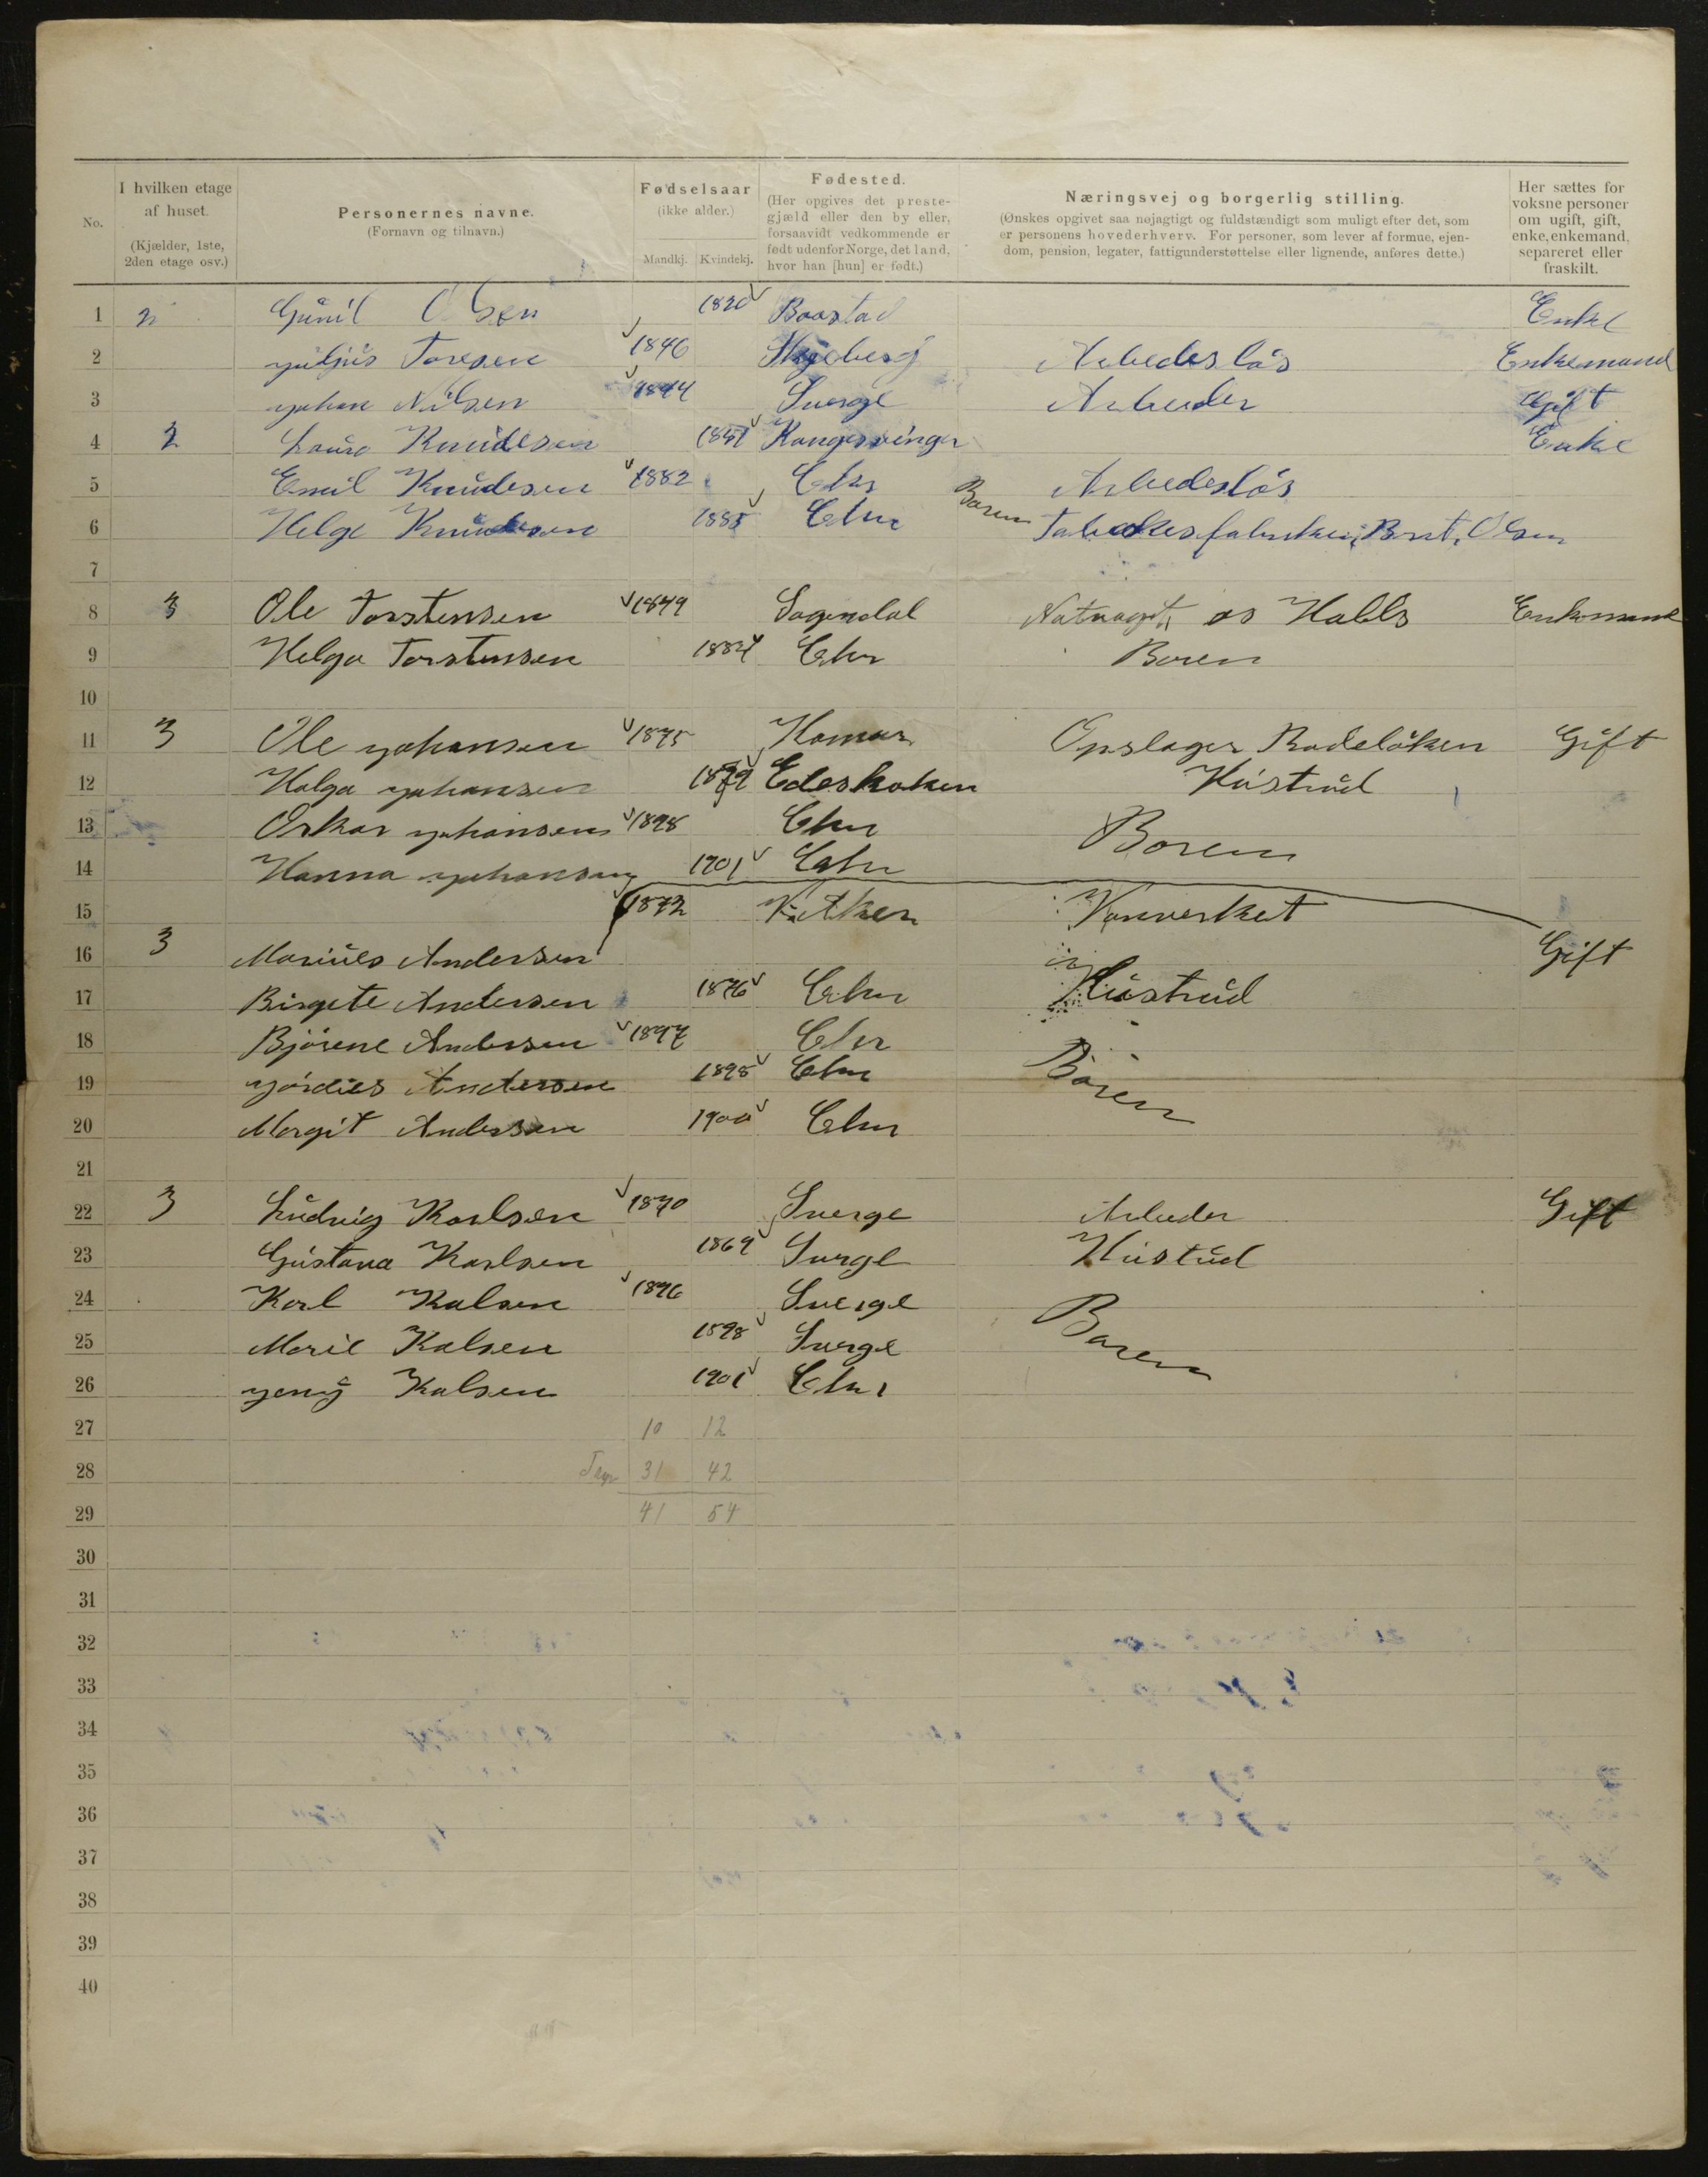 No. I hvilken etage af huset. (Kjælder, 1ste, 2den etage osv.) Personernes navne. (Fornavn og tilnavn.) Fødselsaar (ikke alder.) Mandkj. Kvindekj. Fødested. (Her opgives det prestegjæld eller den by eller, forsaavidt vedkommende er født udenfor Norge, det land, hvor han [hun] er født.) Næringsvej og borgerlig stilling. (Ønskes opgivet saa nøjagtigt og fuldstændigt som muligt efter det, som er personens hovederhverv. For personer, som lever af formue, ejendom, pension, legater, fattigunderstøttelse eller lignende, anføres dette.) Her sættes for voksne personer om ugift, gift, enke, enkemand, separeret eller fraskilt.
1 2 Gunil Olsen 1820 Baastad Enke
2 Toresen 1846 Arbedesløs Enkemand
3 yohan Nilsen 1844 Sverge Arbeider Gift
4 2 Laura Knudesen Kongesvinger Enke
5 Emil Knudesen 1882 Chr Arbedesløs
6 Helge Knudesen 1885 Chr Baren Olsen
7
8 3 Ole Torstensen 1849 Sogendal Enkemand
9 Helga Torstensen 1884 Chr Baren
10
11 3 Ole yohansen 1875 Hamar Opslager Rodeløken Gift
12 Helga yohansen 1879 Hustrud
13 Oskar yohansen 1898 Chr Baren
14 Hanna yohansen 1901 Chr
15 1872 Vanverket
16 3 Mariues Andersen Gift
17 Birgete Andersen 1876 Chr Hustrud
18 Bjørene Andersen 1897 Chr
19 yordies Andersen 1898 Chr Baren
20 Margit Andersen 1900 Chr
21
22 3 Ludvig Karlsen 1870 Sverge Arbeder Gift
23 Gustava Karlsen 1869 Sverge Hustud
24 Karl Kalsen 1896 Sverge
25 Marie Kalsen 1898 Sverge Baren
26 yeny Kalsen 1901 Chr
27 10 12
28 31 42
29 41 54
30
31
32
33
34
35
36
37
38
39
40